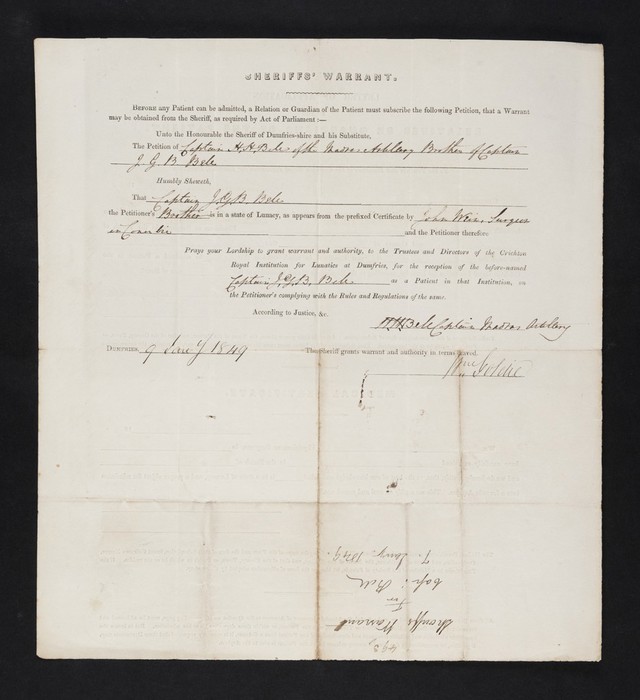 SHERIFFS' WARRANT.
BEFORE any Patient can be admitted, a Relation or Guardian of the Patient must subscribe the following Petition, that a Warrant
may be obtained from the Sheriff, as required by Act of Parliament :—
Unto the Honourable the Sheriff of Dumfries-shire and his Substitute,
The Petition of Captain A H Bell of the Madras Artillery Brother of Captain
J. G. B. Bell
Humbly Sheweth,
That Captain J G B Bell
the Petitioner's Brother is in a state of Lunacy, as appears from the prefixed Certificate by John Surgeon
in and the Petitioner therefore
Prays your Lordship to grant warrant and authority, to the Trustees and Directors of the Crichton
Royal Institution for Lunatics at Dumfries, for the reception of the before-named
Captain J. G. B. Bell as a Patient in that Institution, on
the Petitioner's complying with the Rules and Regulations of the same.
According to Justice, &c.
Bell Captain Madras Artillery
DUMFRIES, 9 Jany 1849 The Sheriff grants warrant and authority in terms craved.
Goldie
493
Sheriffs Warrant
For
Capt: Bell
Jany. 1849.